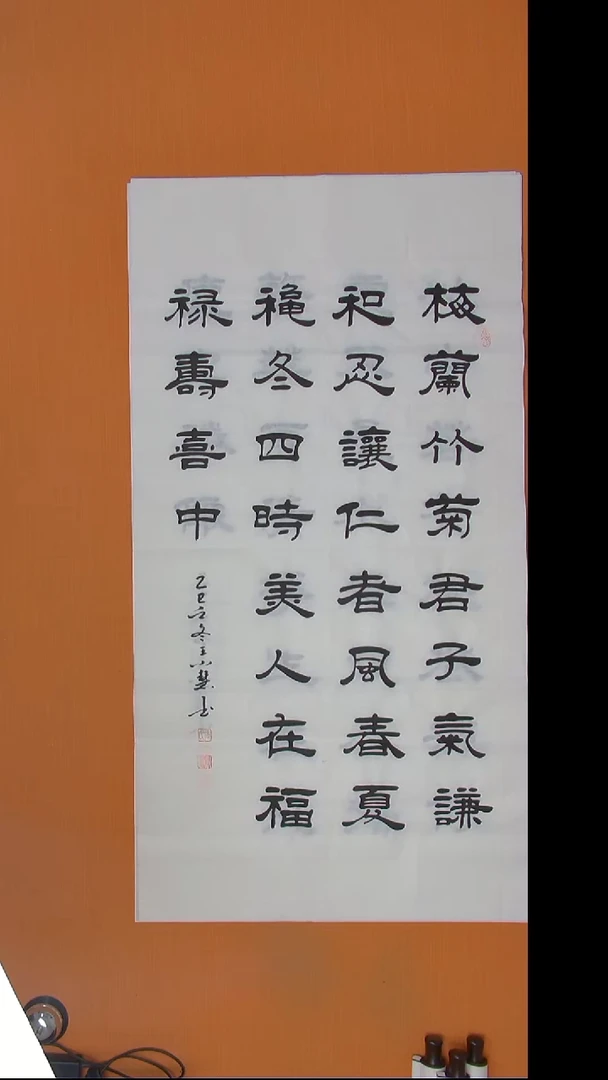 梅蘭竹菊君子氣謙
和忍讓仁者風春夏
穐冬四時美人在福
禄壽喜中
乙巳立冬王小慧書